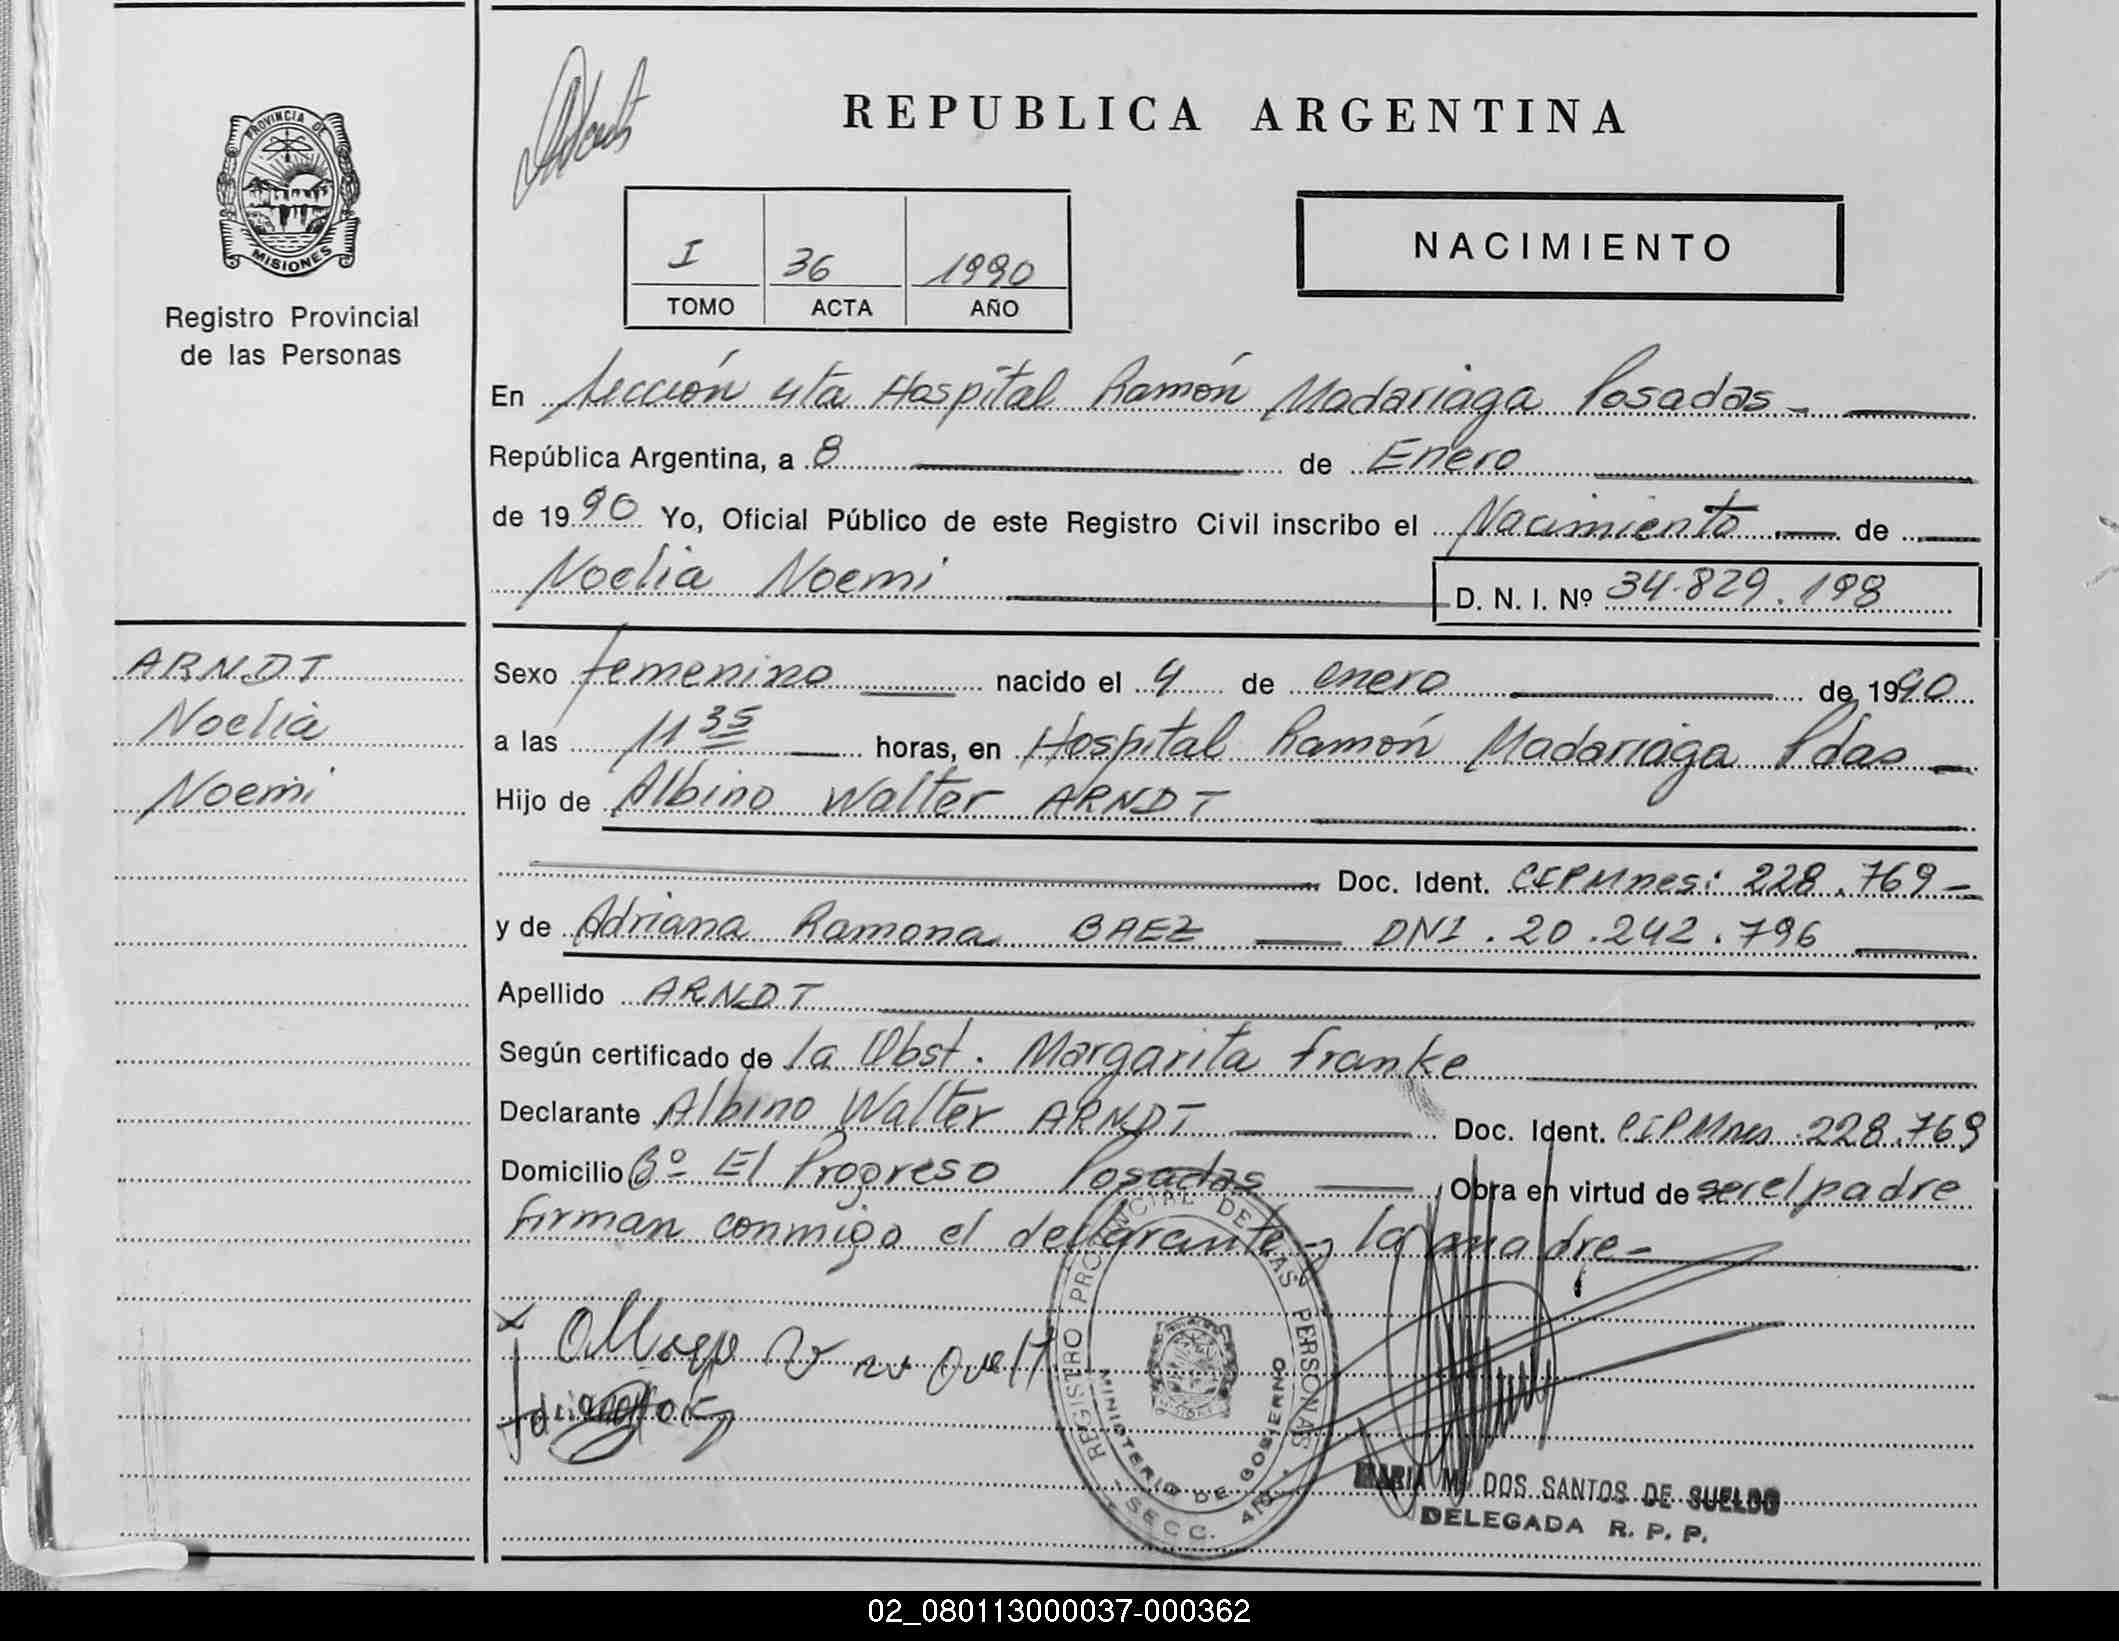 Arndt
REPUBLICA ARGENTINA
PROVINCIA DE
MISIONES
Registro Provincial
de las Personas
I 36 1990
TOMO ACTA AÑO
NACIMIENTO
En Sección 4ta Hospital Ramón Madariaga Posadas -
República Argentina, a 8 de Enero
de 1990 Yo, Oficial Público de este Registro Civil inscribo el Nacimiento de
Noelia Noemi D. N. I. Nº 34.829.198
ARNDT
Noelia
Noemi
Sexo femenino nacido el 4 de enero de 1990
a las 11 35 horas, en Hospital Ramón Madariaga Pdas
Hijo de Albino Walter ARNDT
Doc. Ident. CIPMnes: 228.769-
y de Adriana Ramona BAEZ DNI . 20.242.796
Apellido ARNDT
Según certificado de la Obst. Margarita Franke
Declarante Albino Walter ARNDT Doc. Ident. CIPMnes 228.769
Domicilio Bº El Progreso Posadas Obra en virtud de ser el padre
firman conmigo el declarante y la madre-
REGISTRO PROVINCIAL DE LAS PERSONAS
MINISTERIO DE GOBIERNO
SECC. 4ta.
MARIA M. DOS SANTOS DE SUELDO
DELEGADA R. P. P.
02_080113000037-000362